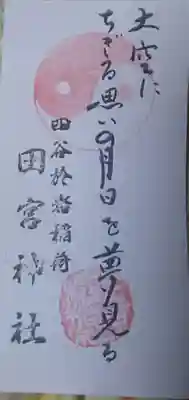 大空に
ちぎる思いの月日を夢見る
四谷於岩稲荷
田宮神社